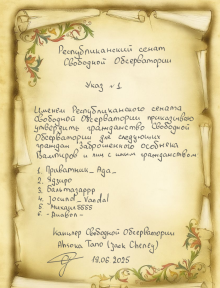 Республиканский сенат
Свободной Обсерватории
Указ №1
Именем Республиканского сената
Свободной Обсерватории приказываю
утвердить гражданство Свободной
Обсерватории для следующих
граждан Заброшенного особняка
Вампиров и им с ними гражданством
1. Приватная_Ада_
2. Ядзиро
3. Бальтазаррр
4. Joound_Vandal
5. Микаил5555
6. -Анавел-
Канцлер Свободной Обсерватории
Апока Тапо (Jack Cheney)
18.06.2025